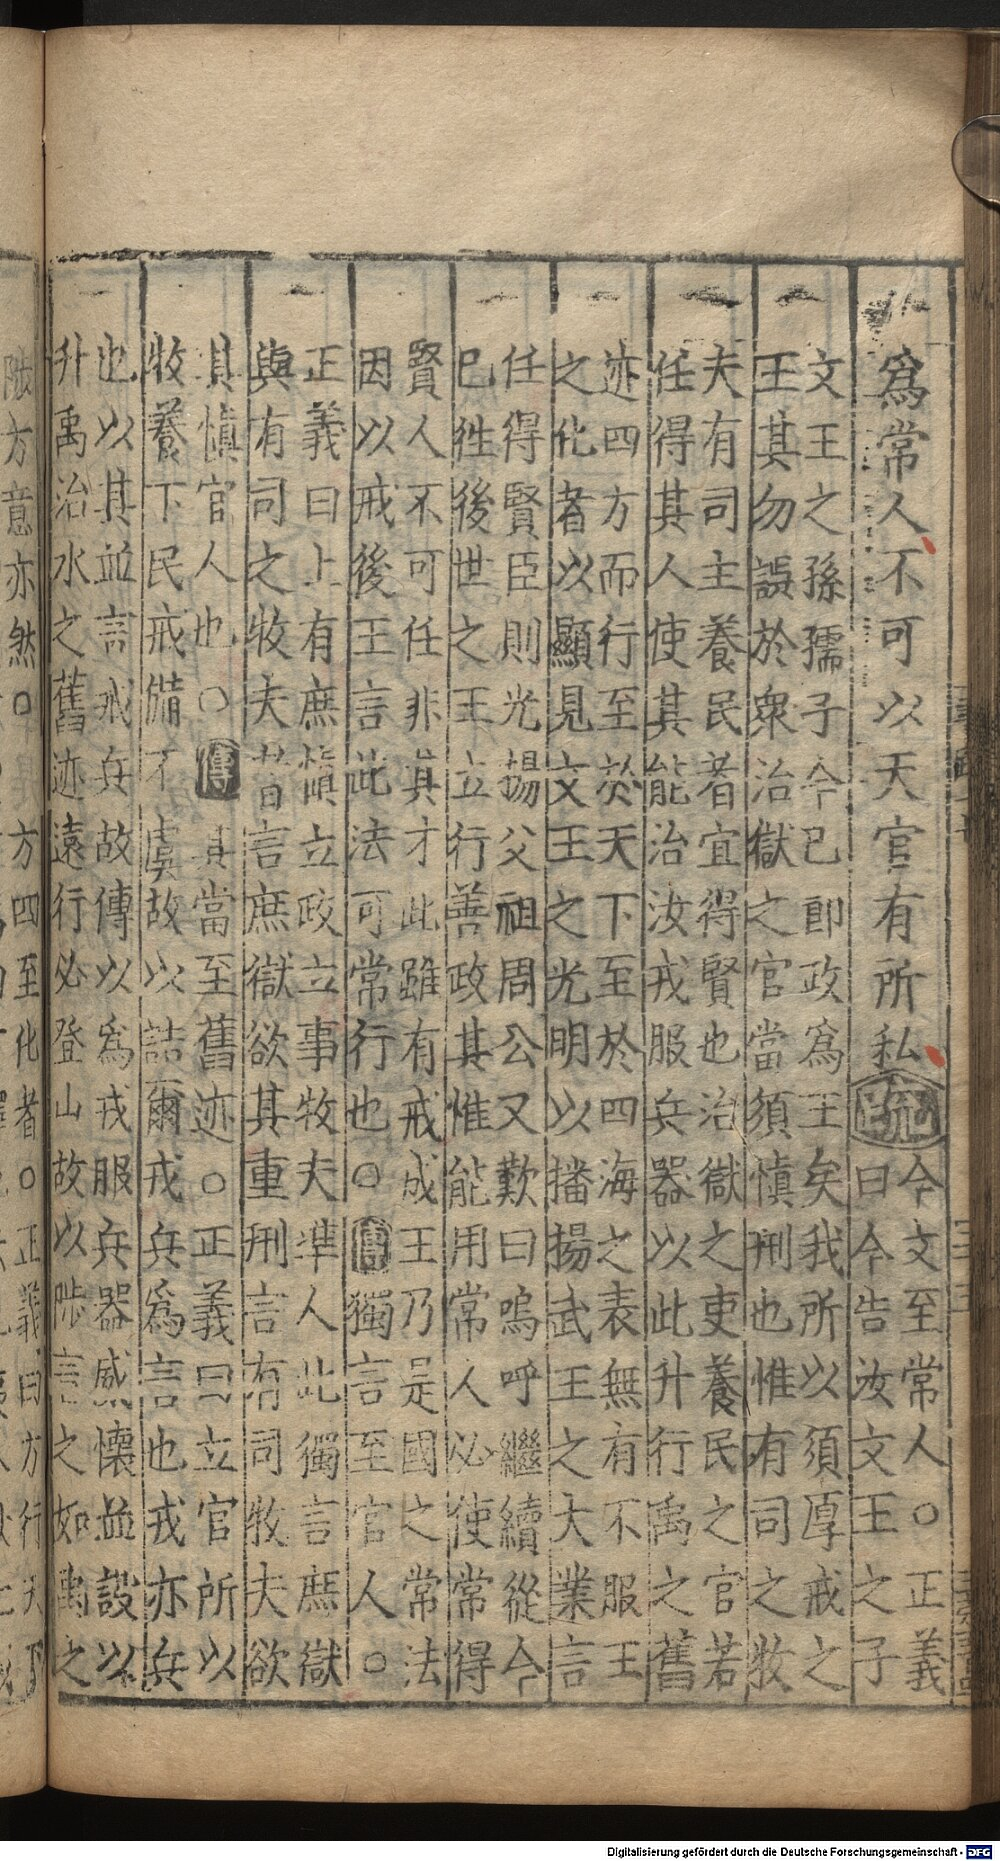 爲常人不可以天官有所私疏
今文至常人○正義
曰今告汝文王之子
文王之孫孺子今已即政爲王矣我所以須厚戒之
王其勿誤於衆治獄之官當須愼刑也惟有司之牧
夫有司主養民者宜得賢也治獄之吏養民之官若
任得其人使其能治汝戎服兵器以此升行禹之舊
迹四方而行至於天下至於四海之表無有不服王
之化者以顯見文王之光明以播揚武王之大業言
任得賢臣則光揚父祖周公又歎曰嗚呼繼續從今
已徃後世之王立行善政其惟能用常人必使常得
賢人不可任非其才此雖有戒成王乃是國之常法
因以戒後王言此法可常行也○傳獨言至官人○
正義曰上有庶愼立政立事牧夫準人此獨言庶獄
與有司之牧夫者言庶獄欲其重刑言有司牧夫欲
其愼官人也○傳其當至舊迹○正義曰立官所以
牧養下民戒備不虞故以詰爾戎兵爲言也戎亦兵
也以其並言戎兵故傳以爲戎服兵器威懷並設以
升禹治水之舊迹遠行必登山故以陟言之如禹之
陟方意亦然○
方四至化者○正義曰方行天下
Digitalisierung gefördert durch die Deutsche Forschungsgemeinschaft - DFG